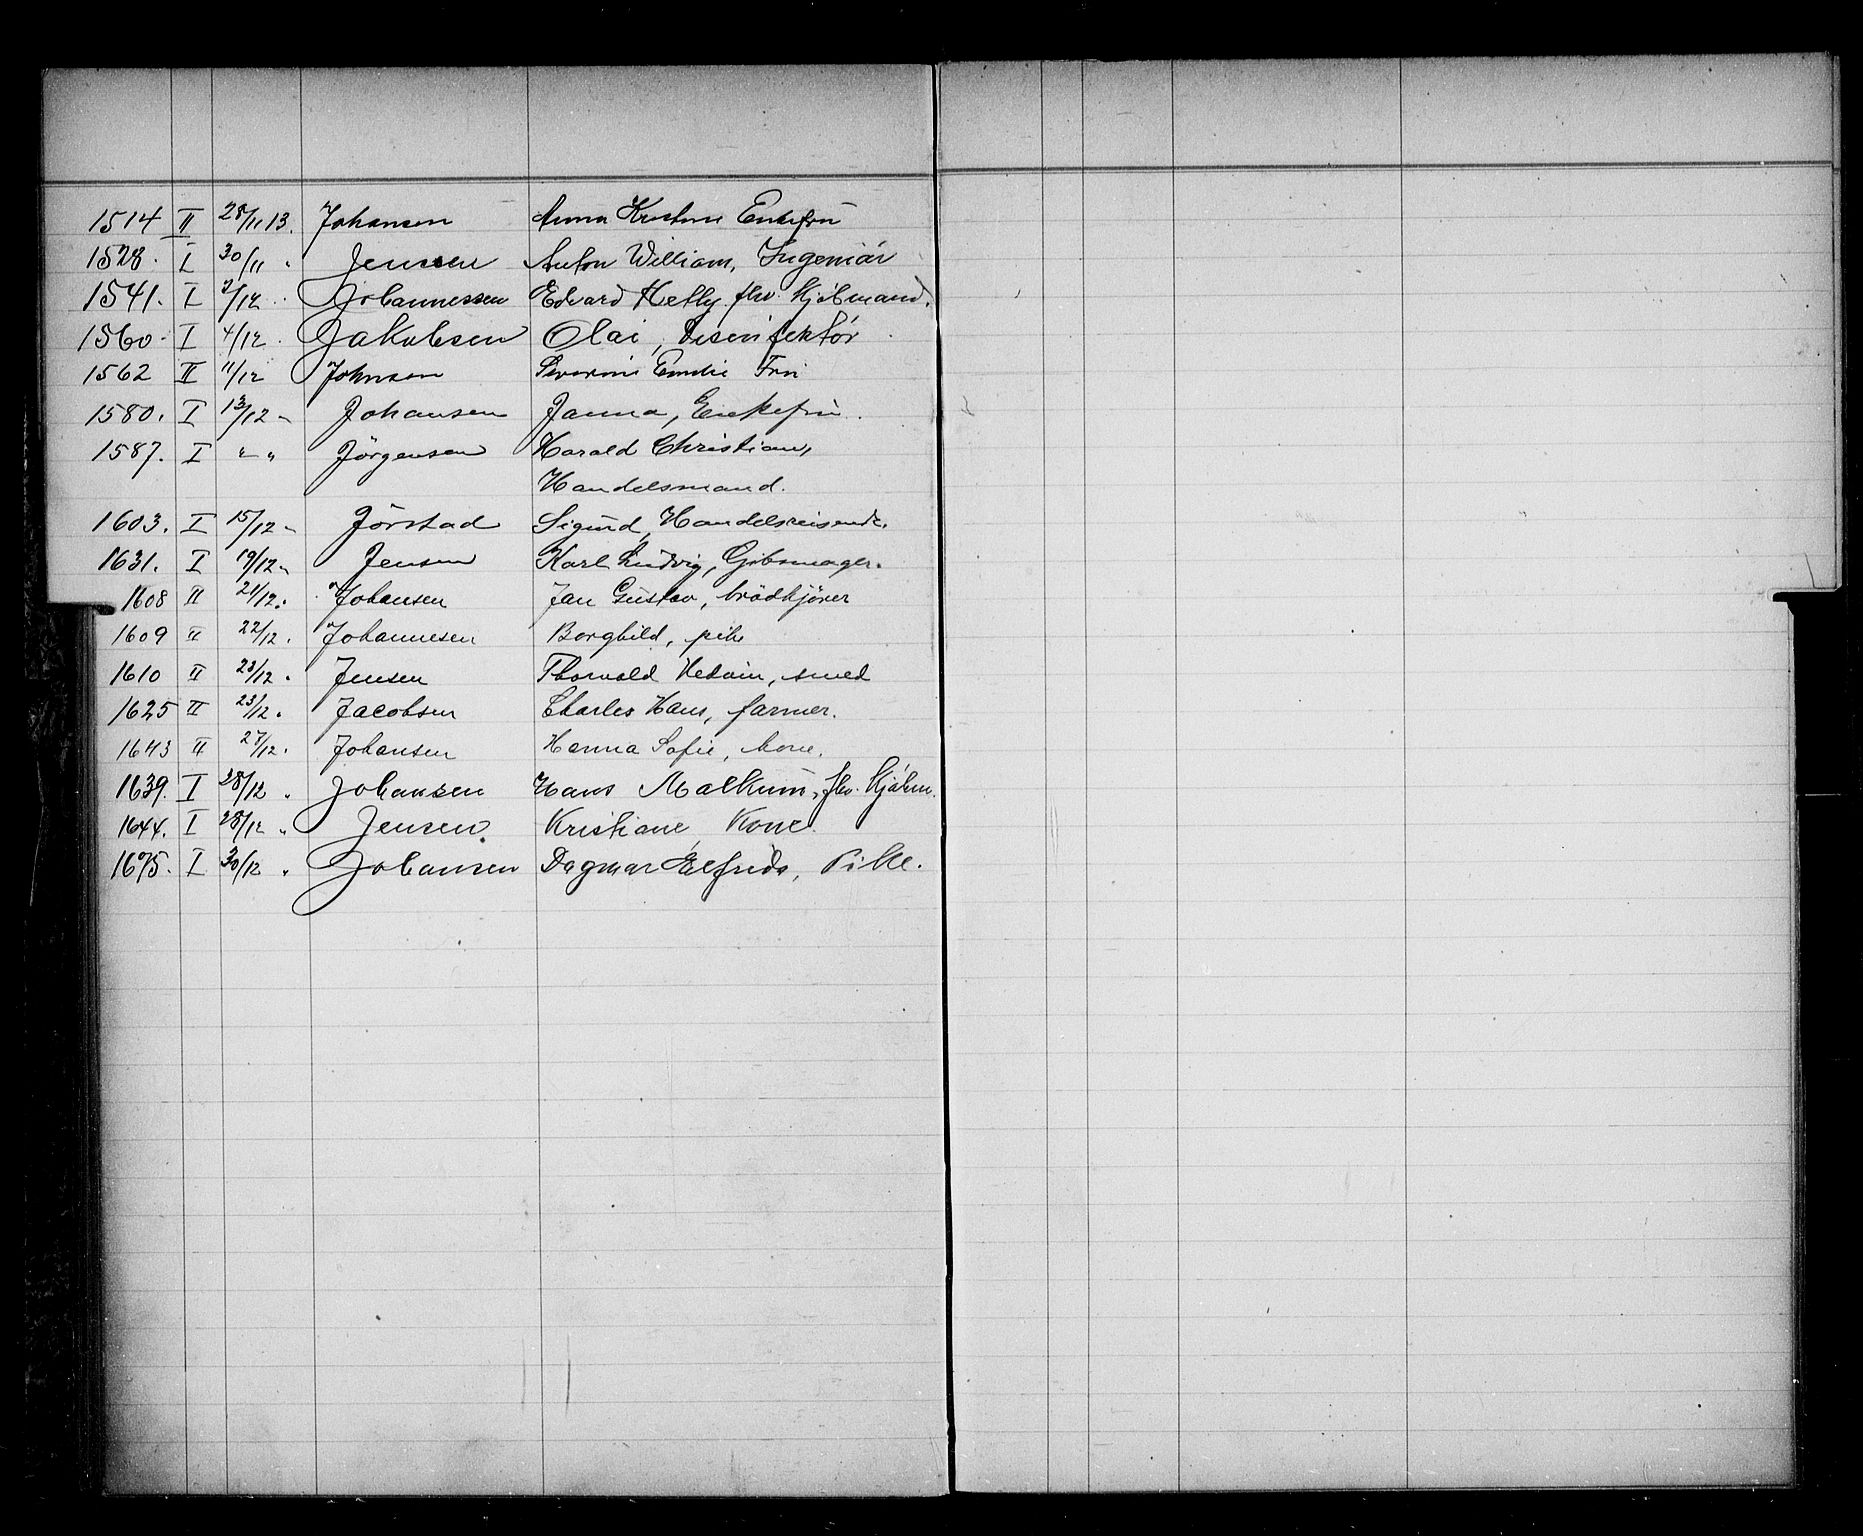 1514 II 28/11 13. Johansen Anna Kristine Enkefrü
1528. I 30/11 " Jenssen Anton William, Ingeniør
1541. I 2/12 " Johannessen Edvard Hefly fhv. Kjøbmand.
1560 I 4/12 " Jakobsen Olai, Desinfektør
1562 II 11/12 Johnsen Severine Emilie Frü
1580. I 13/12 " Johansen Janna, Enkefrü.
1587. I " " Jörgensen Harald Christian,
Handelsmand.
1603. I 15/12 " Jörstad Sigurd, Handelsreisende.
1631. I 19/12 " Jensen Karl Ludvig, Gibsmager.
1608 II 21/12 " Johansen Jan Gustav, brödkjører
1609 II 22/12 " Johannesen Borghild, pike
1610 II 23/12 " Jensen Thorvald smed
1625 II 23/12 " Jacobsen Charles Hans, farmer.
1643 II 27/12 " Johansen Hanna Sofie, kone.
1639. I 28/12 " Johansen Hans fhv. Kjøbm.
1644. I 28/12 " Jensen. Kristiane Kone.
1675. I 30/12 " Johansen Dagmar Elfrida, Pike.